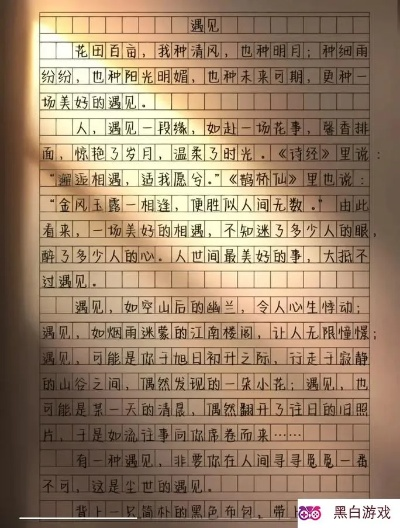 遇见
花田百亩，我种清风，也种明月；种细雨
纷纷，也种阳光明媚，也种未来可期，更种一
场美好的遇见。
人，遇见一段缘，如赴一场花事，馨香排
面，惊艳了岁月，温柔了时光。《诗经》里说：
“邂逅相遇，适我愿兮。”《鹊桥仙》里也说：
“金风玉露一相逢，便胜似人间无数。”由此
看来，一场美好的相遇，不知迷了多少人的眼，
醉了多少人的心。人世间最美好的事，大抵不
过遇见。
遇见，如空山后的幽兰，令人心生悸动；
遇见，如烟雨迷蒙的江南楼阁，让人无限憧憬；
遇见，可能是你于旭日初升之际，行走于寂静
的山谷之间，偶然发现的一朵小花；遇见，也
可能是某一天的清晨，偶然翻开了往日的旧照
片，于是如流往事向你席卷而来……
有一种遇见，非要你在人间寻寻觅觅一番
不可，这是尘世的遇见。
背上一只简朴的黑色布包，带上
黑白游戏